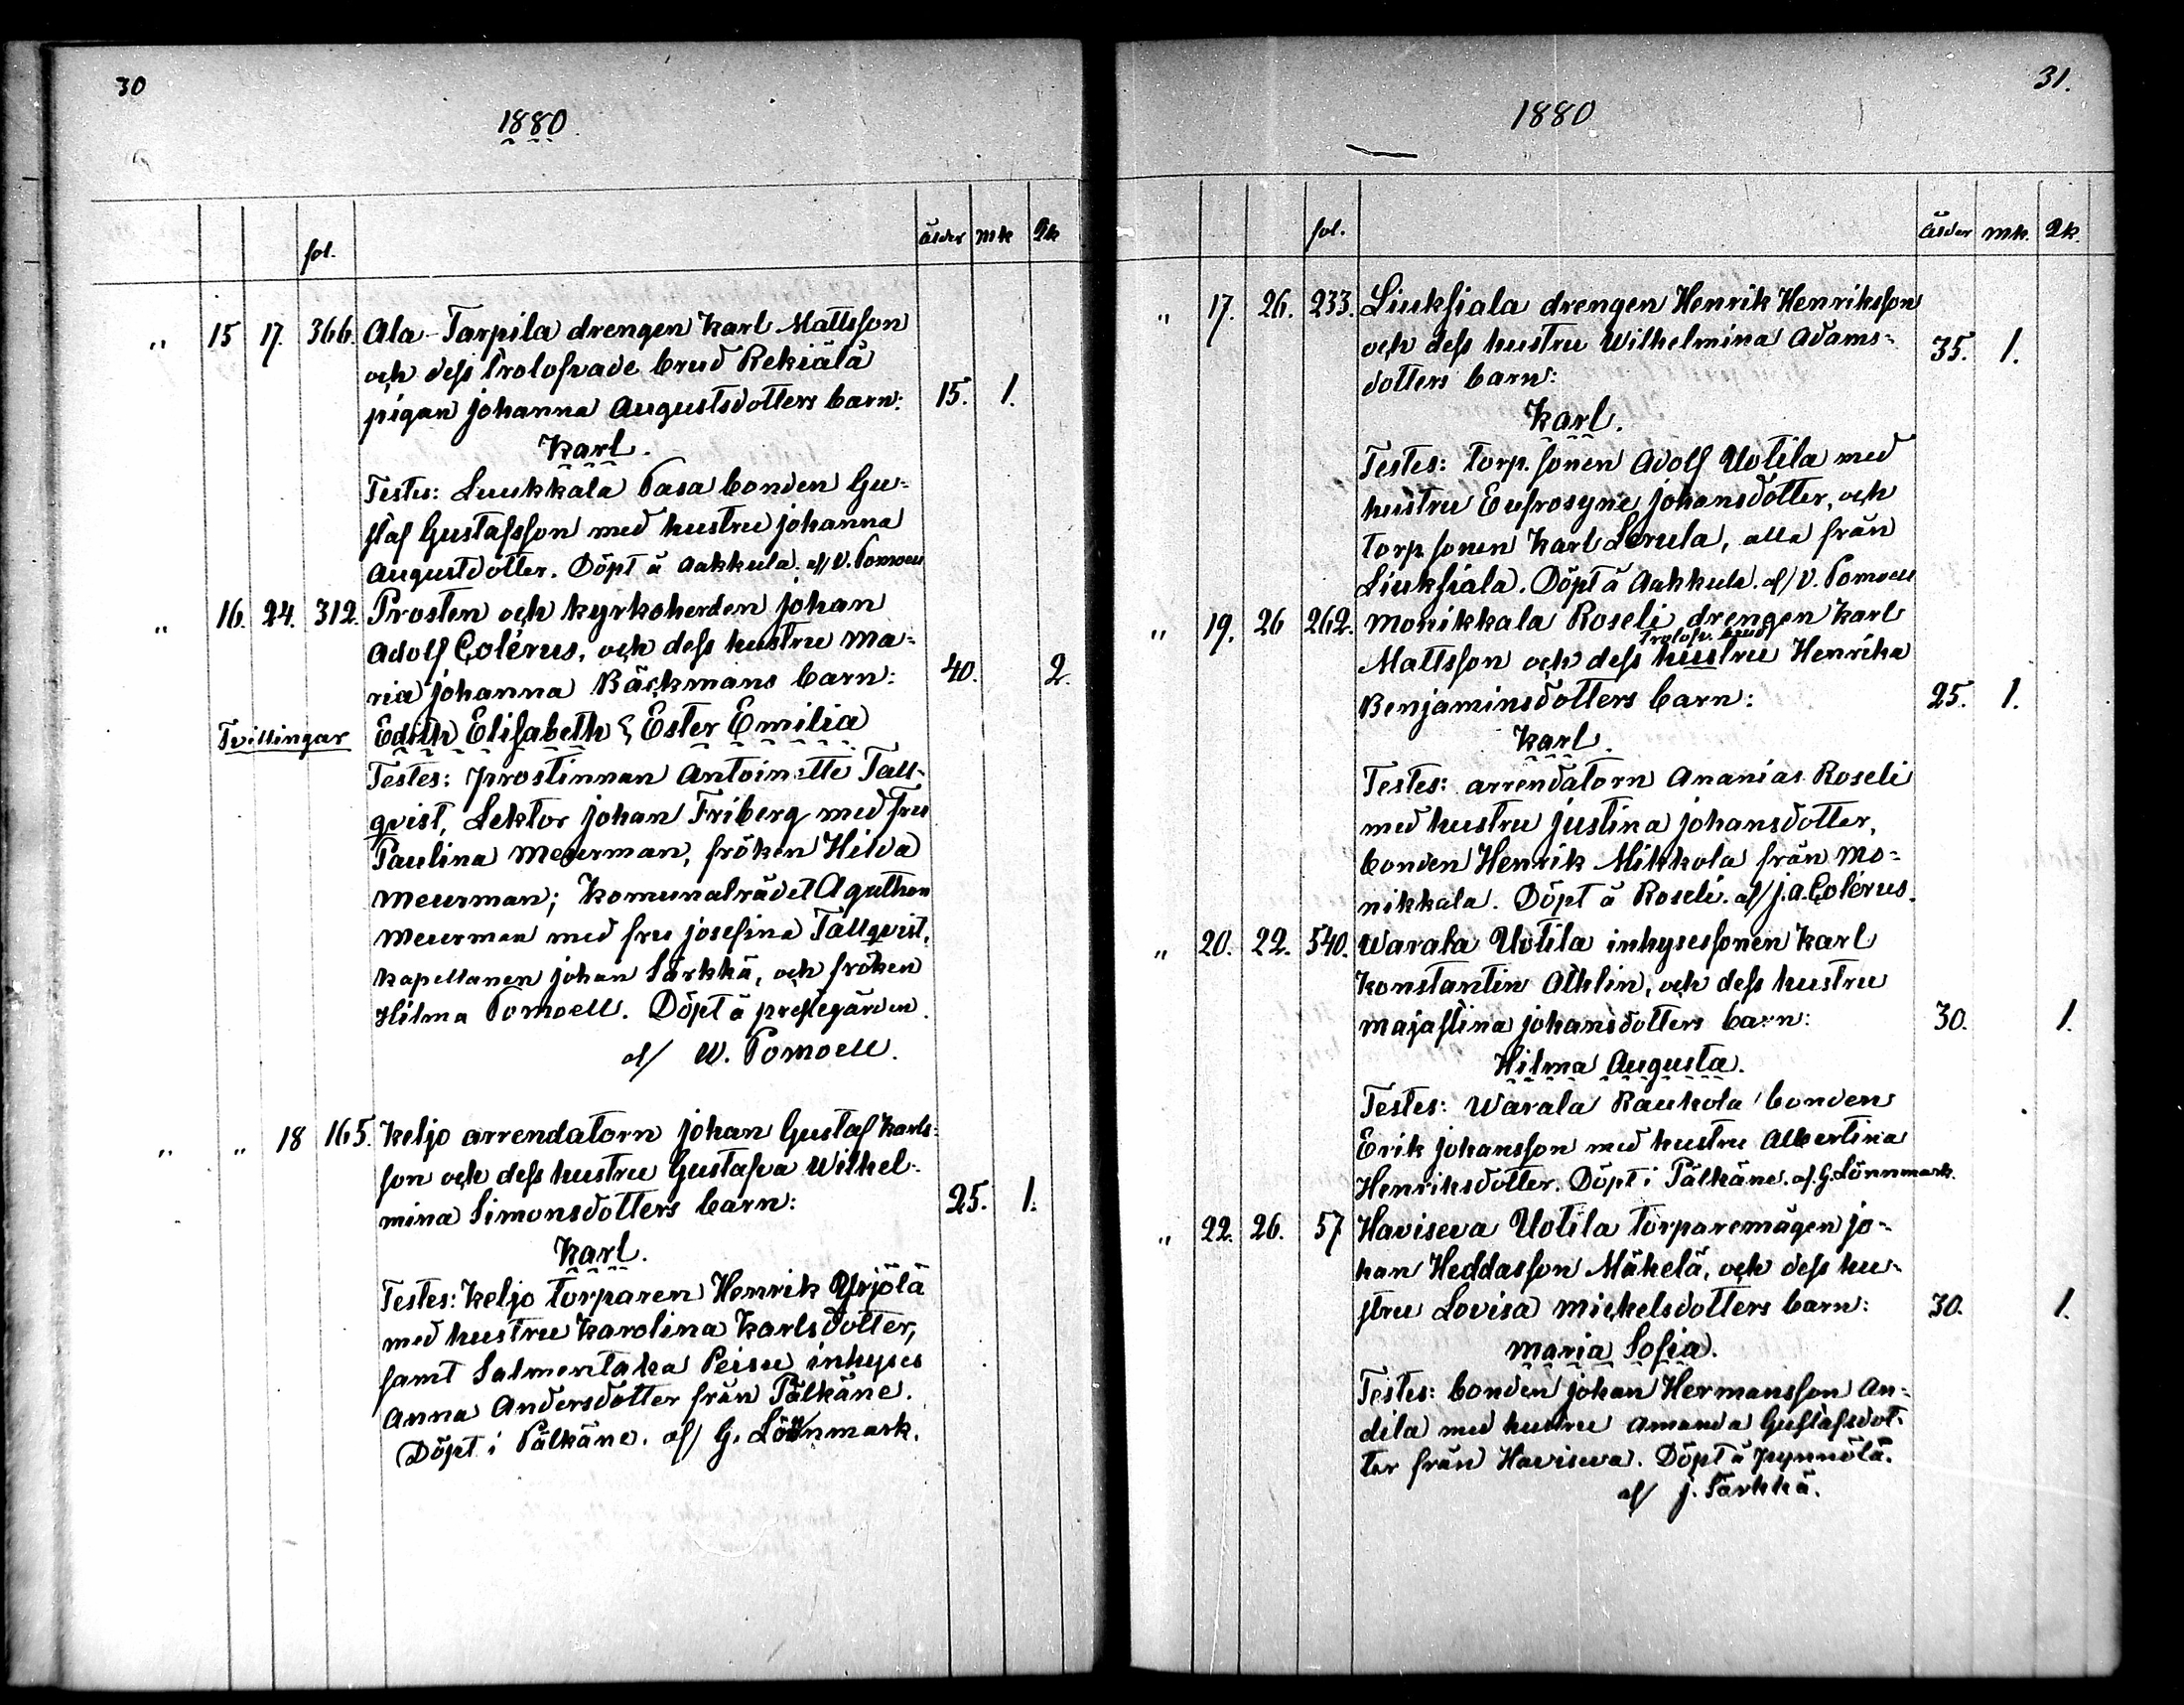 30
1880.
fol. ålder mk qk
„ 15 17. 366. Ala-Tarpila drengen Karl Mattsson
och dess trolofvade brud Rekiälä
pigan Johanna Augustsdotters barn: 15. 1.
Karl.
Testes: Luukkala Pasa bonden Gu-
staf Gustafsson med hustru Johanna
Augustdotter. Döpt å Aakkula. af V. Pomoell
„ 16. 24. 312. Prosten och kyrkoherden Johan
Adolf Colérus, och dess hustru Ma-
ria Johanna Bäckmans barn: 40. 2.
Tvillingar Edith Elisabeth & Ester Emilia
Testes: prostinnan Antoinette Tall-
qvist, Lektor Johan Friberg med fru
Paulina Meurman, fröken Hilda
Meurman; Komunalrådet Agathon
Meurman med fru Josefina Tallqvist,
kapellanen Johan Särkkä, och fröken
Hilma Pomoell. Döpt å prestegården.
af W. Pomoell.
„ „ 18 165. Keljo arrendatorn Johan Gustaf Karls-
son och dess hustru Gustafva Wilhel-
mina Simonsdotters barn: 25. 1.
Karl.
Testes: Keljo torparen Henrik Yrjölä
med hustru Karolina Karlsdotter,
samt Salmentaka Peisu inhyses
Anna Andersdotter från Pälkäne.
Döpt i Pälkäne. af G. Lönnmark.
31.
1880
fol. ålder mk. qk.
„ 17. 26. 233. Liuksiala drengen Henrik Henriksson
och dess hustru Wilhelmina Adams- 35. 1.
dotters barn:
Karl.
Testes: torp.sonen Adolf Uotila med
hustru Eufrosyne Johansdotter, och
torp.sonen Karl Lerula, alla från
Liuksiala. Döpt å Aakkula. af V. Pomoell
„ 19. 26 262. Monikkala Roseli drengen Karl
trolofv. brud
Mattsson och dess hustru Henrika
Benjaminsdotters barn: 25. 1.
Karl.
Testes: arrendatorn Ananias Roseli
med hustru Justina Johansdotter,
bonden Henrik Mikkola från Mo-
nikkala. Döpt å Roseli. af J. A. Colérus.
„ 20. 22. 540. Warala Uotila inhysessonen Karl
Konstantin Athlin, och dess hustru
Majastina Johansdotters barn: 30. 1.
Hilma Augusta.
Testes: Warala Raukola bonden
Erik Johansson med hustru Albertina
Henriksdotter. Döpt i Pälkäne. af G. Lönnmark.
„ 22. 26. 57 Haviseva Uotila torparemågen Jo-
han Heddasson Mäkelä, och dess hu-
stru Lovisa Mickelsdotters barn: 30. 1.
Maria Sofia.
Testes: bonden Johan Hermansson An-
dila med hustru Amanda Gustafsdot-
ter från Haviseva. Döpt å Pynnölä.
af J. Särkkä.